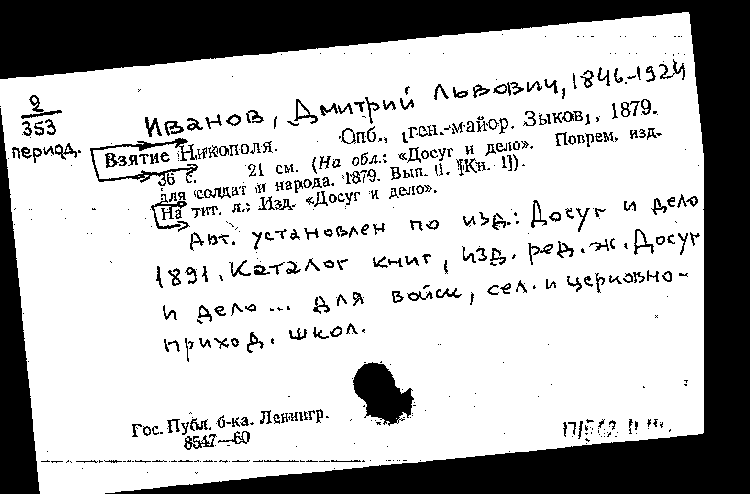 2
353
период.
Иванов, Дмитрий Львович, 1846-1924
Взятие Никополя. Спб., ген.-майор. Зыков, 1879.
36 с. 21 см. (На обл.: «Досуг и дело». Поврем. изд.
для солдат и народа. 1879. Вып. 1. [Кн. 1]).
На тит. л.: Изд. «Досуг и дело».
Авт. установлен по изд.: Досуг и дело
1891. Каталог книг, изд. ред. ж. Досуг
и дело... для войск, сел. и церковно-
приход. школ.
Гос. Публ. б-ка. Ленингр.
8547—60